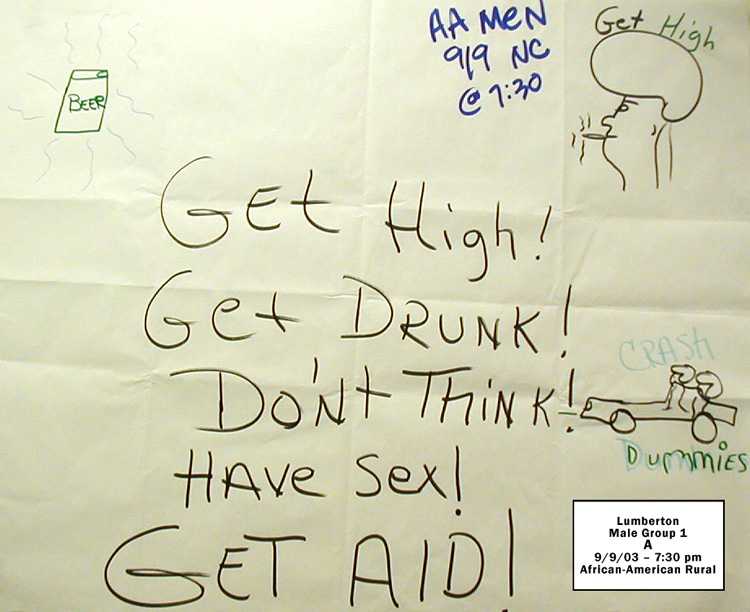 AA MEN
9/9 NC
@ 7:30
Get High
BEER
GEt High!
Get DRUNK!
DON't THiNK!
HAVe Sex!
GET AID!
CRASH
Dummies
Lumberton
Male Group 1
A
9/9/03 – 7:30 pm
African-American Rural